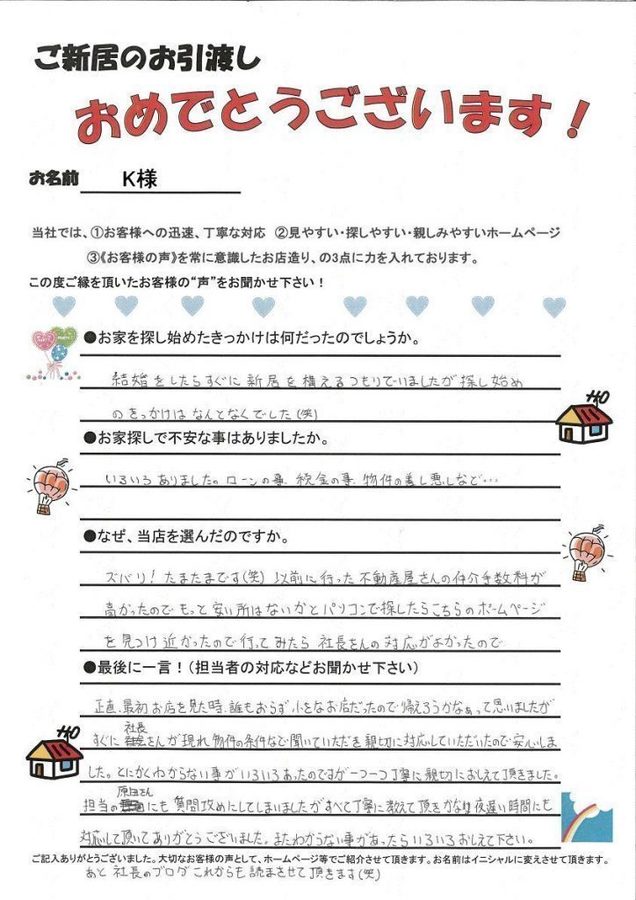 ご新居のお引渡し
おめでとうございます！
お名前 K様
当社では、①お客様への迅速、丁寧な対応 ②見やすい・探しやすい・親しみやすいホームページ
③《お客様の声》を常に意識したお店造り、の3点に力を入れております。
この度ご縁を頂いたお客様の“声”をお聞かせ下さい！
●お家を探し始めたきっかけは何だったのでしょうか。
結婚をしたらすぐに新居を構えるつもりでいましたが探し始め
のきっかけはなんとなくでした(笑)
●お家探しで不安な事はありましたか。
いろいろありました。ローンの事、税金の事、物件の差し悪しなど…
●なぜ、当店を選んだのですか。
ズバリ！たまたまです(笑) 以前に行った不動産屋さんの仲介手数料が
高かったのでもっと安い所はないかとパソコンで探したらこちらのホームページ
を見つけ近かったので行ってみたら社長さんの対応がよかったので
●最後に一言！（担当者の対応などお聞かせ下さい）
正直、最初お店を見た時、誰もおらず小さなお店だったので帰ろうかなぁって思いましたが
すぐに社長さんが現れ物件の条件など聞いていただき親切に対応していただいたので安心しま
した。とにかくわからない事がいろいろあったのですが一つ一つ丁寧に親切におしえて頂きました。
担当の原田さんにも質問攻めにしてしまいましたがすべて丁寧に教えて頂きかなり夜遅い時間にも
対応して頂いてありがとうございました。またわからない事があったらいろいろおしえて下さい。
ご記入ありがとうございました。大切なお客様の声として、ホームページ等でご紹介させて頂きます。お名前はイニシャルに変えさせて頂きます。
あと社長のブログこれからも読まさせて頂きます(笑)